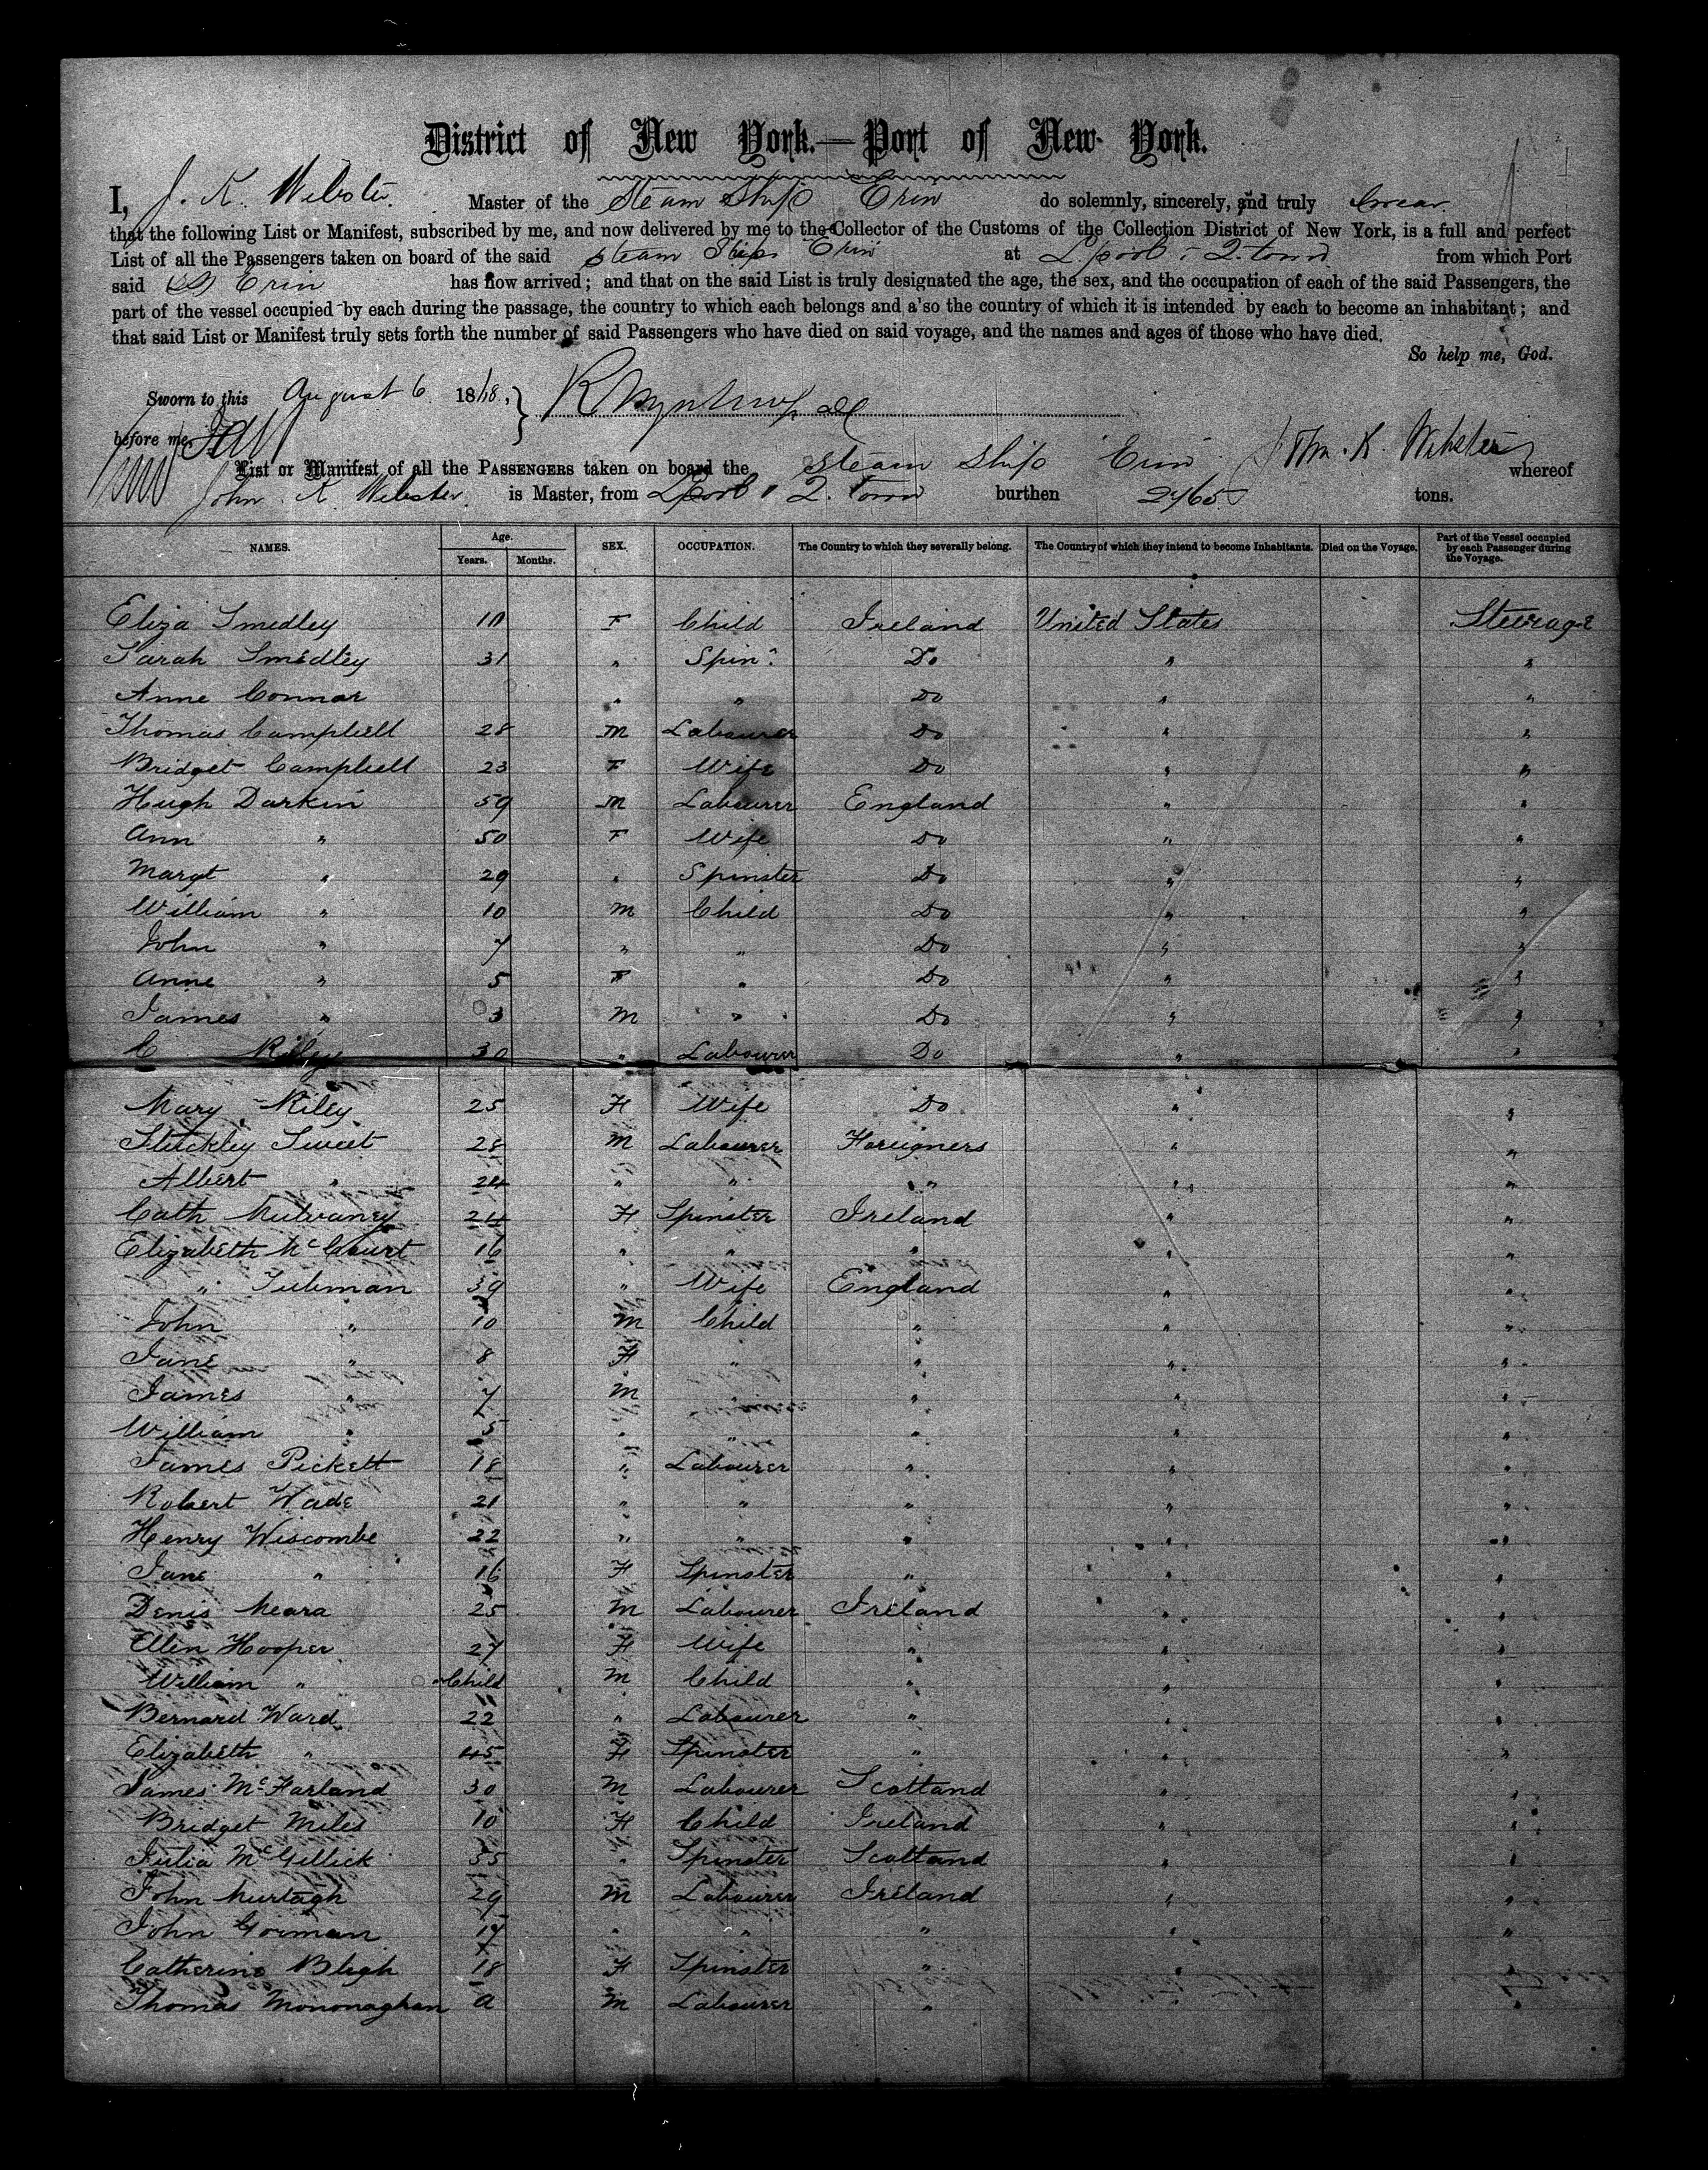 District of New York.—Port of New York.
I, J. K. Webster Master of the Steam Ship Erin do solemnly, sincerely, and truly swear
that the following List or Manifest, subscribed by me, and now delivered by me to the Collector of the Customs of the Collection District of New York, is a full and perfect
List of all the Passengers taken on board of the said Steam Ship Erin at L.pool & Q.town from which Port
said SS Erin has now arrived; and that on the said List is truly designated the age, the sex, and the occupation of each of the said Passengers, the
part of the vessel occupied by each during the passage, the country to which each belongs and a'so the country of which it is intended by each to become an inhabitant; and
that said List or Manifest truly sets forth the number of said Passengers who have died on said voyage, and the names and ages of those who have died.
So help me, God.
Sworn to this August 6 18
before me,
List or Manifest of all the PASSENGERS taken on board the Steam Ship Erin K. Webster whereof
John K Webster is Master, from Lpool & Q. town burthen tons.
NAMES. Age. Years. Months. SEX. OCCUPATION. The Country to which they severally belong. The Country of which they intend to become Inhabitants. Died on the Voyage. Part of the Vessel occupied by each Passenger during the Voyage.
Eliza Smedley F Child Ireland United States Steerage
Sarah Smedley 31 " Spin. Do " "
Anne Connor " " Do " "
Thomas Campbell 28 M Labourer Do " "
Bridget Campbell 23 F Wife Do " "
Hugh Darkin 59 M Labourer England " "
Ann " 50 F Wife Do " "
Margt " 29 " Spinster Do " "
William " 10 M Child Do " "
John " 7 " " Do " "
Anne " 5 F " Do " "
James " 3 M " Do " "
C Riley 30 " Labourer Do " "
Mary Riley 25 F Wife Do " "
Stuckley Sweet 28 M Labourer Foreigners " "
Albert " 24 " " " " "
Cath Mulvaney 24 F Spinster Ireland " "
Elizabeth McCourt 16 " " " " "
" Tubman 39 " Wife England " "
John " 10 M Child " " "
Jane " 8 F " " " "
James " 7 M " " " "
William " 5 " " " " "
James Pickett 18 " Labourer " " "
Robert Wade 21 " " " " "
Henry Wiscombe 22 " " " " "
Jane " 16 F Spinster " " "
Denis Meara 25 M Labourer Ireland " "
Ellen Hooper 27 F Wife " " "
William " Child M Child " " "
Bernard Ward 22 " Labourer " " "
Elizabeth " 45 F Spinster " " "
James McFarland 30 M Labourer Scotland " "
Bridget Miles 10 F Child Ireland " "
Julia McGillick 35 " Spinster Scotland " "
John Murtagh 29 M Labourer Ireland " "
John Gorman 17 " " " " "
Catherine Bligh 18 F Spinster " " "
Thomas Mononaghan a M Labourer " "